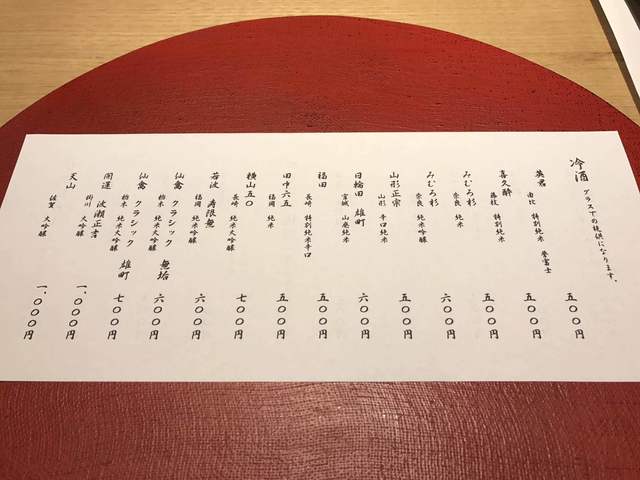 冷酒 グラスでの提供になります。
英君
由比 特別純米 誉富士 五〇〇円
喜久酔
藤枝 特別純米 五〇〇円
みむろ杉
奈良 純米 五〇〇円
みむろ杉
奈良 純米吟醸 六〇〇円
山形正宗
山形 辛口純米 五〇〇円
日輪田 雄町
宮城 山廃純米 六〇〇円
福田
長崎 特別純米辛口 五〇〇円
田中六五
福岡 純米 五〇〇円
横山五〇
長崎 純米大吟醸 七〇〇円
若波 寿限無
福岡 純米吟醸 六〇〇円
仙禽 クラシック 無垢
栃木 純米大吟醸 六〇〇円
仙禽 クラシック 雄町
栃木 純米大吟醸 七〇〇円
開運 波瀬正吉
掛川 大吟醸 一、〇〇〇円
天山
佐賀 大吟醸 一、〇〇〇円